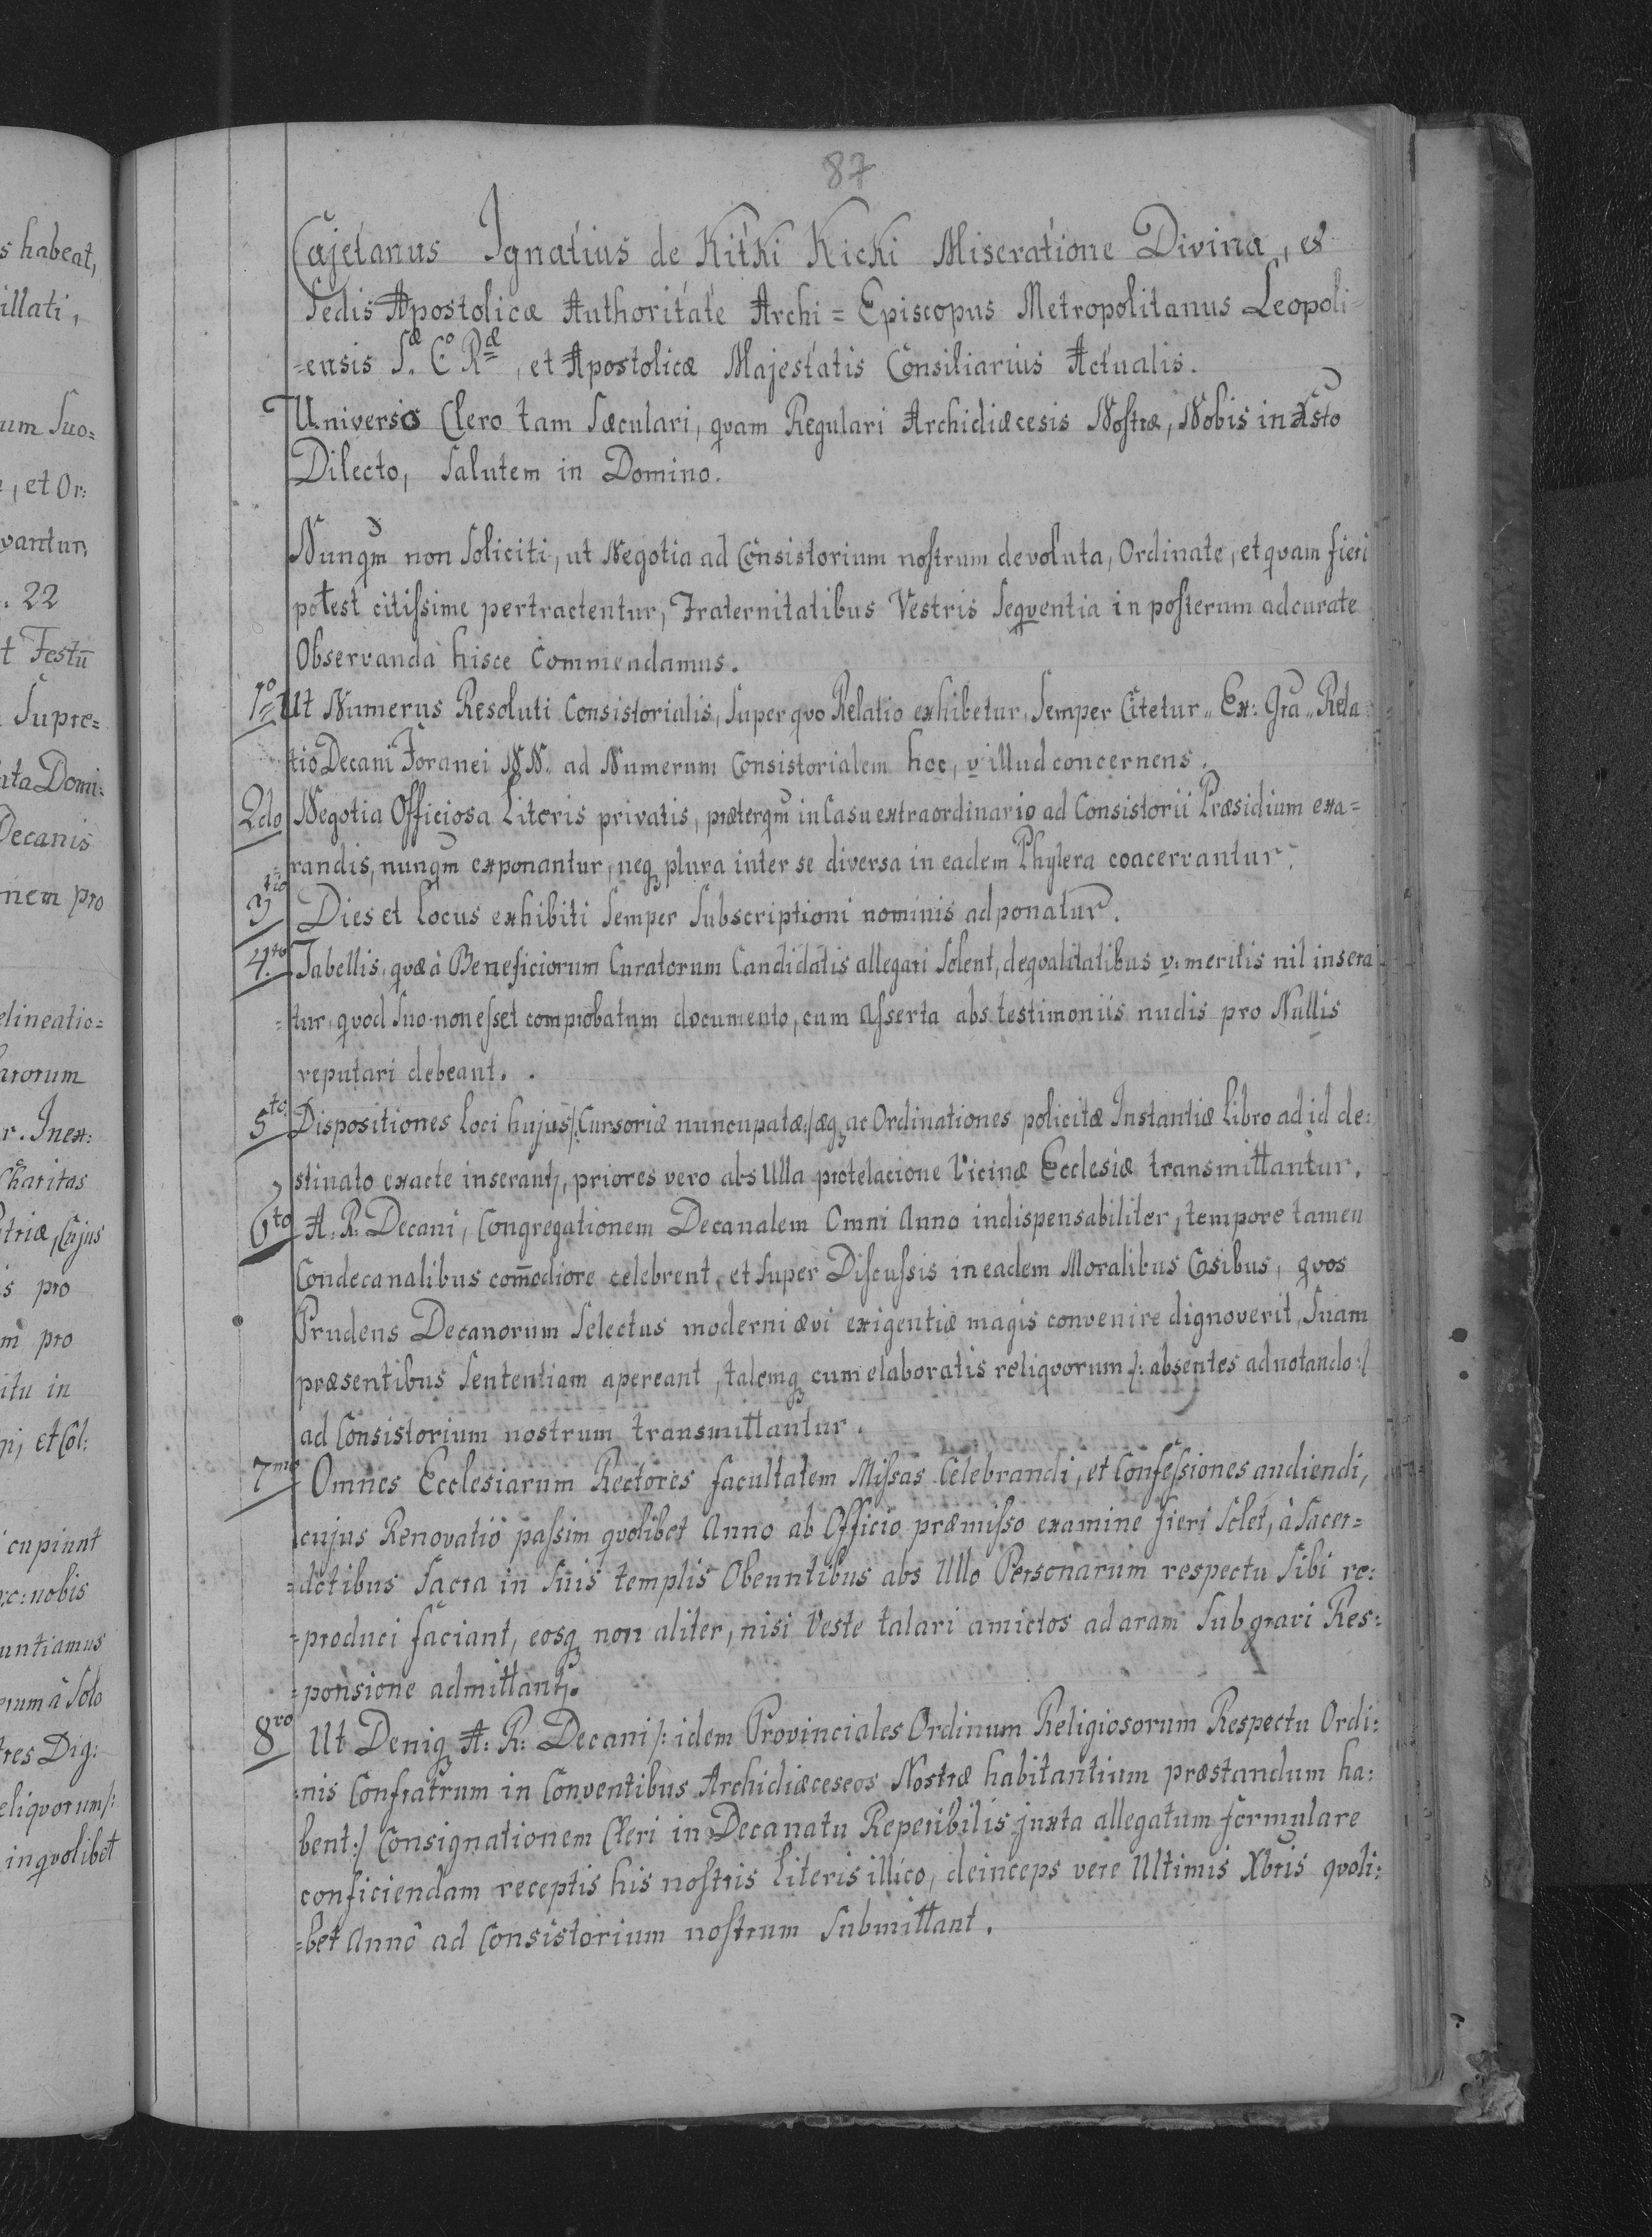 87
Cajetanus Ignatius de Kitki Kicki Miseratione Divina, et
Sedis Apostolicæ Authoritate Archi = Episcopus Metropolitanus Leopoli=
=ensis S.æ C.o R.æ, et Apostolicæ Majestatis Consiliarius Actualis.
Universo Clero tam Sæculari, quam Regulari Archidiæcesis Nostræ, Nobis in Xsto
Dilecto, Salutem in Domino.
Nunqm non Soliciti, ut Negotia ad Consistorium nostrum devoluta, Ordinate, et quam fieri
potest citissime pertractentur, Fraternitatibus Vestris Sequentia in posterum adcurate
Observanda hisce Commendamus.
1o Ut Numerus Resoluti Consistorialis, Super quo Relatio exhibetur, Semper Citetur „ Ex: Gra „ Rela=
tio Decani Foranei N.N. ad Numerum Consistorialem hoc, v illud concernens.
2do Negotia Officiosa Literis privatis, præterqm in Casu extraordinario ad Consistorii Præsidium exa=
randis, nunqm exponantur, neq plura inter se diversa in eadem Phylera coacervantur.
3tio Dies et Locus exhibiti Semper Subscriptioni nominis adponatur.
4to Tabellis, quæ à Beneficiorum Curatorum Candidatis allegari Solent, de qualitatibus v. meritis nil insera
=tur, quod Suo non esset comprobatum documento, cum asserta abs testimoniis nudis pro Nullis
reputari debeant.
5to Dispositiones Loci hujus /: Cursoriæ nuncupatæ :/ æq ac Ordinationes policitæ Instantiæ Libro ad id de:
stinato exacte inserantr, priores vero abs Ulla protelacione Vicinæ Ecclesiæ transmittantur.
6to A: R: Decani, Congregationem Decanalem Omni Anno indispensabiliter, tempore tamen
Condecanalibus com̄odiore celebrent, et Super Discussis in eadem Moralibus Casibus, quos
Prudens Decanorum Selectus moderni ævi exigentiæ magis convenire dignoverit, Suam
præsentibus Sententiam apereant, talemq cum elaboratis reliquorum /: absentes adnotando :/
ad Consistorium nostrum transmittantur.
7mo Omnes Ecclesiarum Rectores facultatem Missas Celebrandi, et Confessiones audiendi,
cujus Renovatio passim quolibet Anno ab Officio præmisso examine fieri Solet, à Sacer=
=dotibus Sacra in Suis templis Obeuntibus abs Ullo Personarum respectu Sibi re:
=produci faciant, eosq non aliter, nisi Veste talari amictos ad aram Sub gravi Res:
=ponsione admittantr.
8vo Ut Deniq A: R: Decani /: idem Provinciales Ordinum Religiosorum Respectu Ordi:
=nis Confratrum in Conventibus Archidiæceseos Nostræ habitantium præstandum ha:
bent :/ Consignationem Cleri in Decanatu Reperibilis juxta allegatum formulare
conficiendam receptis his nostris Literis illico, deinceps vere Ultimis Xbris quoli:
=bet Anno ad Consistorium nostrum Submittant.
s habeat,
illati,
um Suo=
, et Or:
vantur,
. 22
t Festū
Supre=
Domi:
Decanis
nem pro
elineatio=
r. Inex:
Charitas
triæ, Cujus
is pro
m pro
itu in
et Col:
cupiunt
nobis
untiamus
erum à Solo
tres Dig:
eliquorum /:
in quolibet